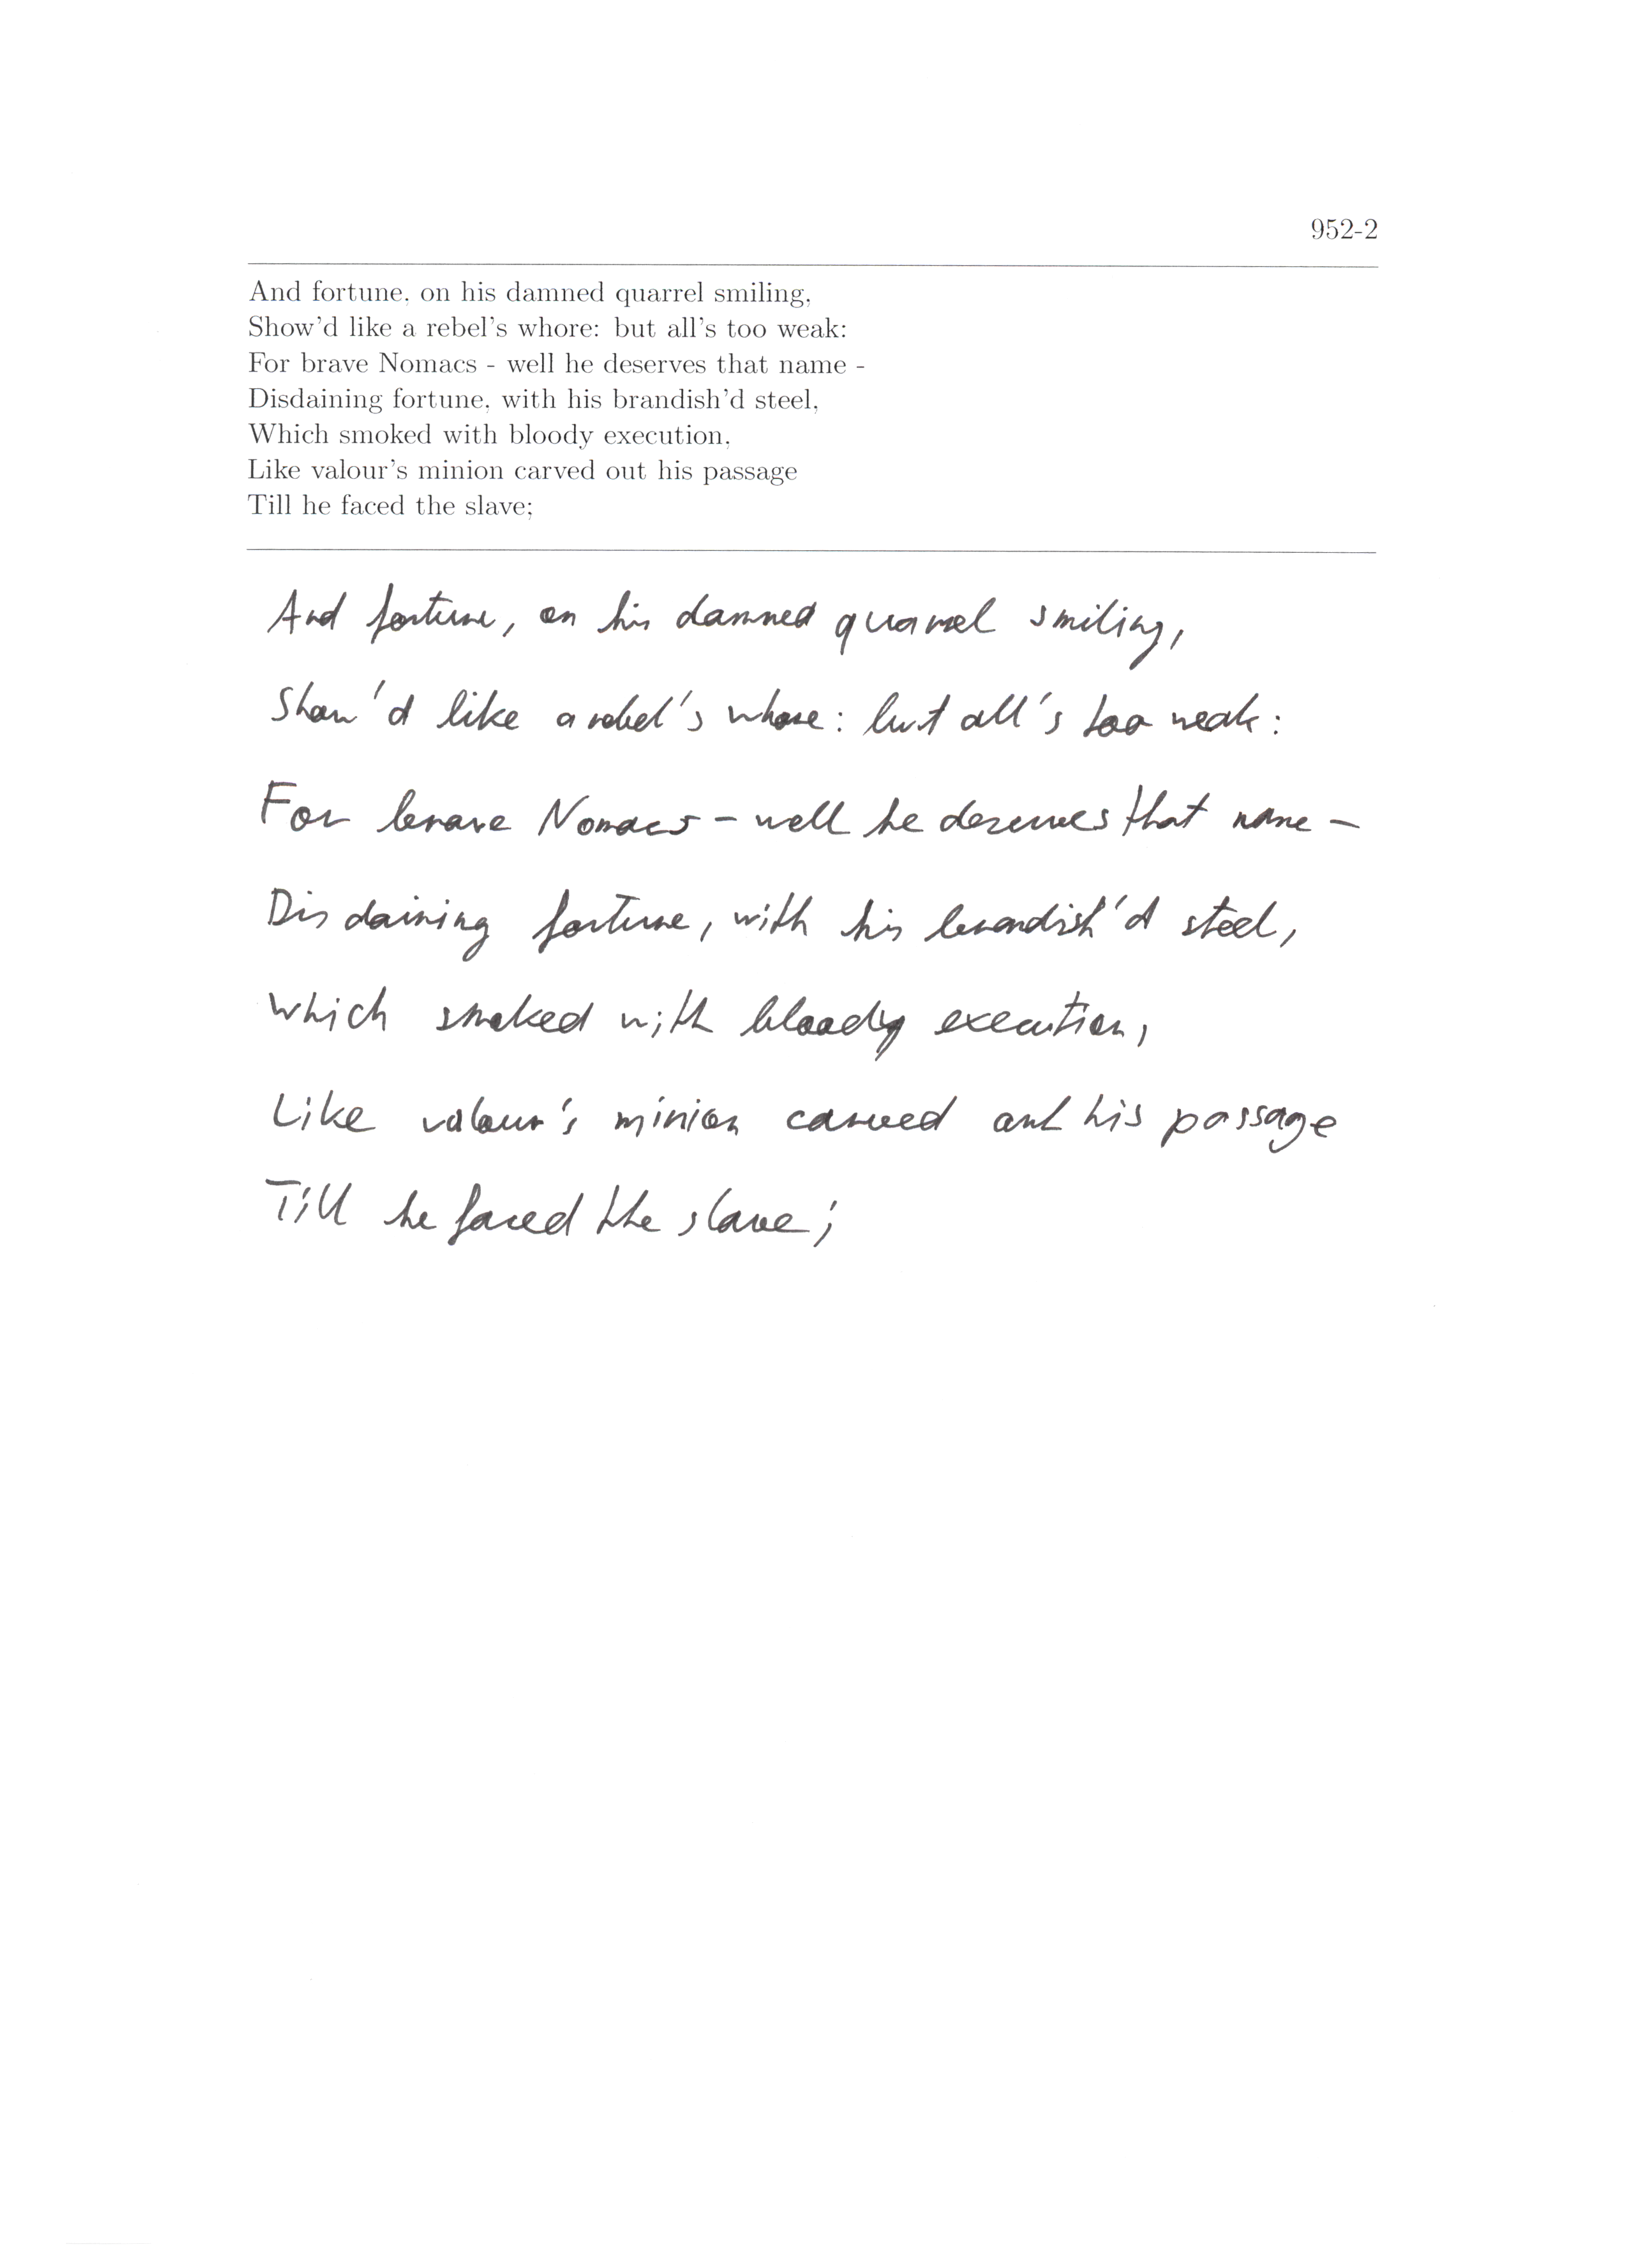 952-2
And fortune, on his damned quarrel smiling,
Show'd like a rebel's whore: but all's too weak:
For brave Nomacs - well he deserves that name -
Disdaining fortune, with his brandish'd steel,
Which smoked with bloody execution,
Like valour's minion carved out his passage
Till he faced the slave;
And fortune, on his damned quarrel smiling,
Show'd like a rebel's whore: but all's too weak:
For brave Nomacs - well he deserves that name -
Disdaining fortune, with his brandish'd steel,
Which smoked with bloody execution,
Like valour's minion carved out his passage
Till he faced the slave;